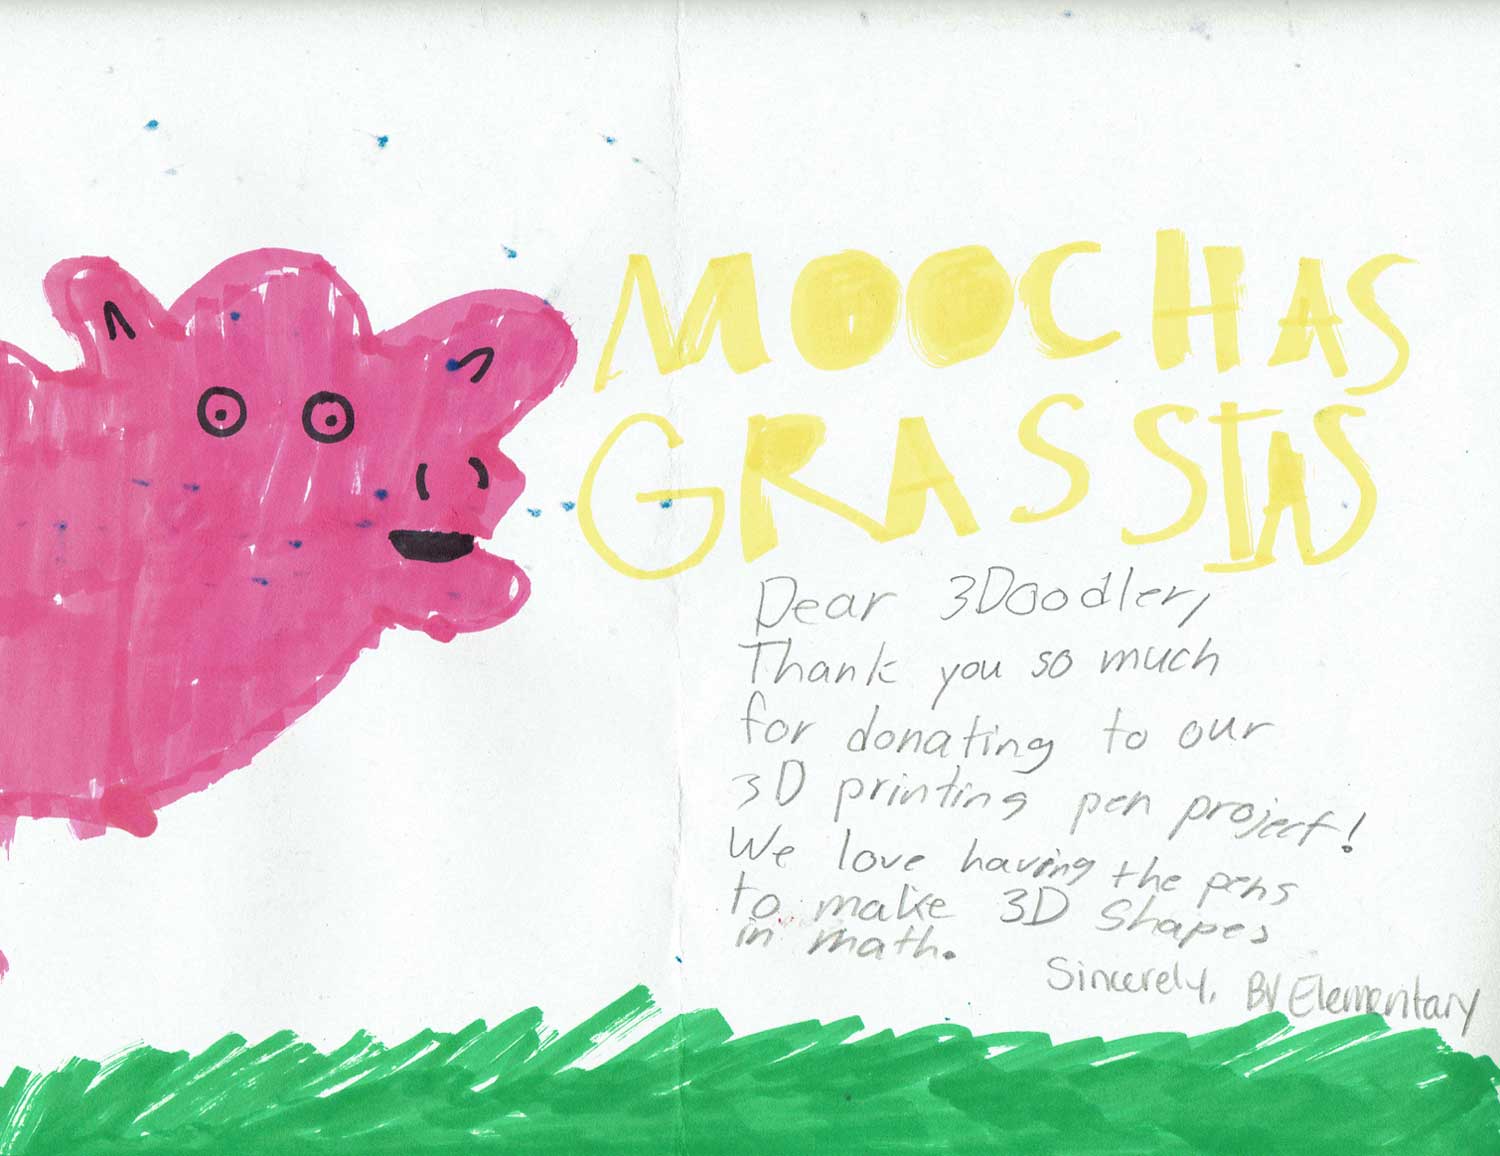 MOOCHAS
GRASSIAS
Dear 3Doodler,
Thank you so much
for donating to our
3D printing pen project!
We love having the pens
to make 3D shapes
in math.
Sincerely, BV Elementary